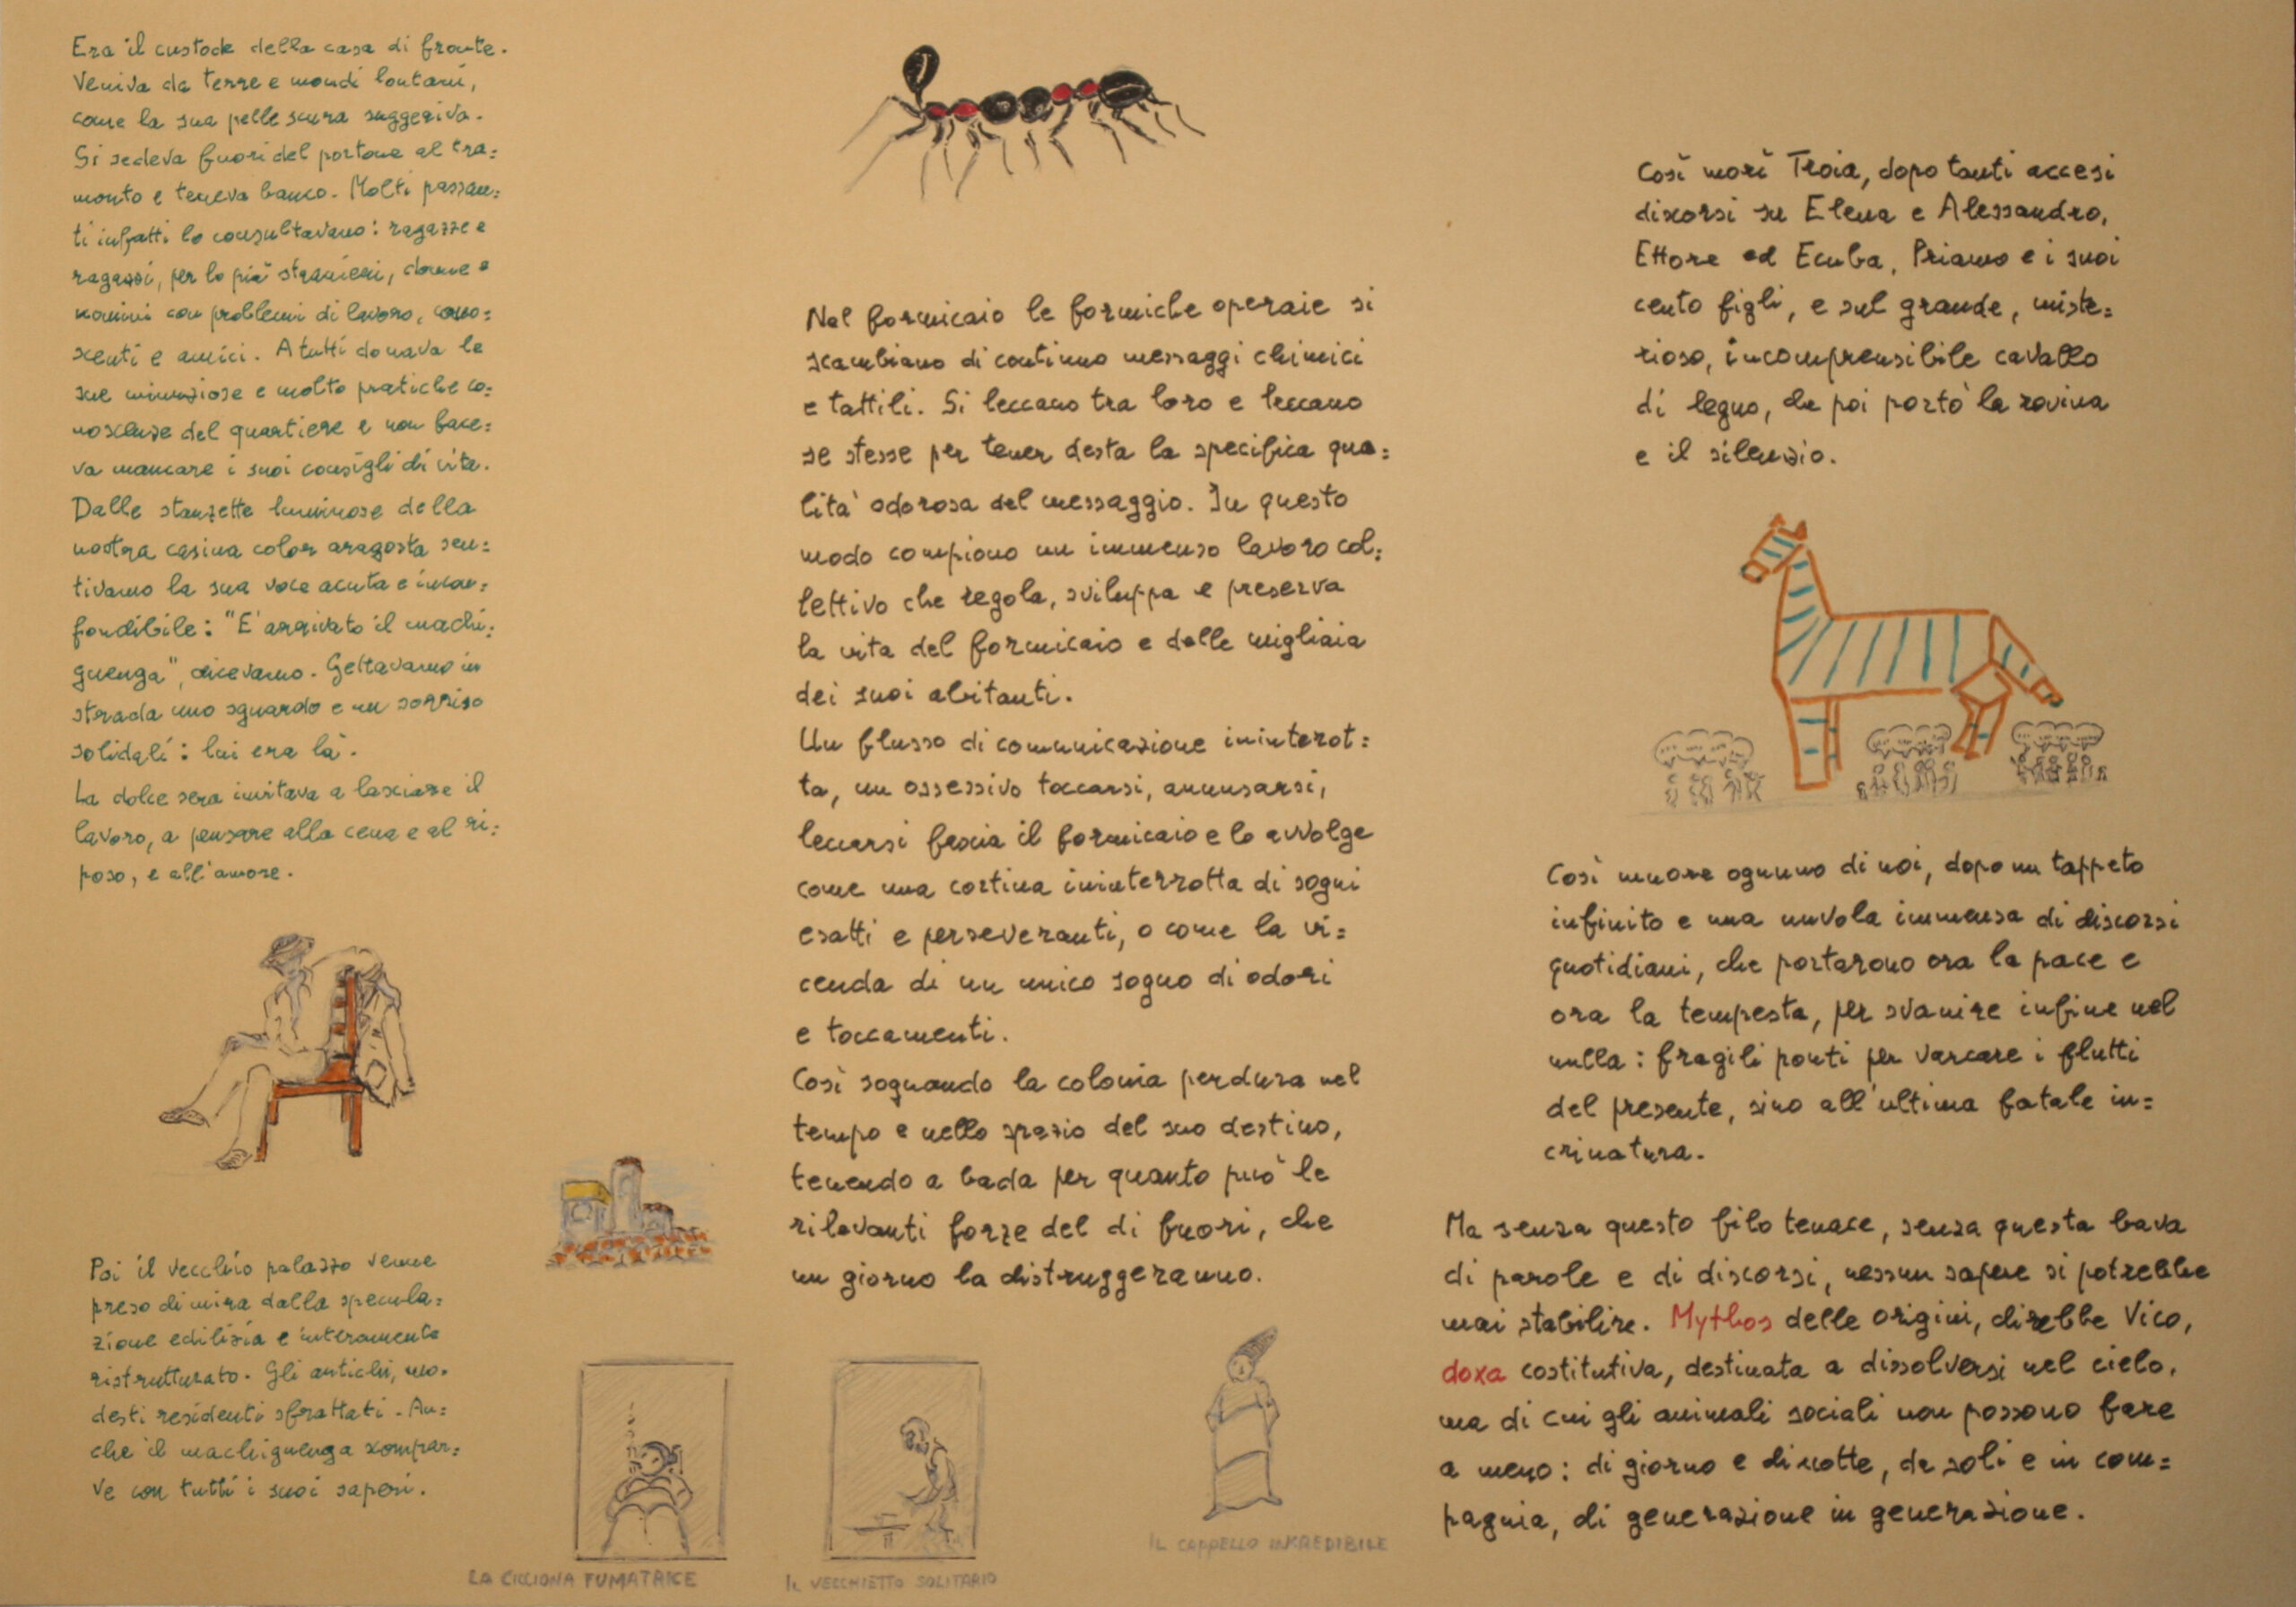 Era il custode della casa di fronte.
Veniva da terre e mondi lontani,
come la sua pelle scura suggeriva.
Si sedeva fuori del portone al tra=
monto e teneva banco. Molti passan=
ti infatti lo consultavano: ragazze e
ragazzi, per lo più stranieri, donne e
uomini con problemi di lavoro, cono=
scenti e amici. A tutti donava le
sue minuziose e molto pratiche co=
noscenze del quartiere e non face=
va mancare i suoi consigli di vita.
Dalle stanzette luminose della
nostra casina color aragosta sen=
tivamo la sua voce acuta e incon=
fondibile: "E' arrivato il machi=
guenga", dicevamo. Gettavamo in
strada uno sguardo e un sorriso
solidali: lui era là.
La dolce sera invitava a lasciare il
lavoro, a pensare alla cena e al ri=
poso, e all'amore.
Poi il vecchio palazzo venne
preso di mira dalla specula=
zione edilizia e interamente
ristrutturato. Gli antichi, mo-
desti residenti sfrattati. An=
che il machiguenga scompar=
ve con tutti i suoi saperi.
LA CICCIONA FUMATRICE
Nel formicaio le formiche operaie si
scambiano di continuo messaggi chimici
e tattili. Si leccano tra loro e leccano
se stesse per tener desta la specifica qua=
lità odorosa del messaggio. In questo
modo compiono un immenso lavoro col=
lettivo che regola, sviluppa e preserva
la vita del formicaio e delle migliaia
dei suoi abitanti.
Un flusso di comunicazione ininterot=
ta, un ossessivo toccarsi, annusarsi,
leccarsi fascia il formicaio e lo avvolge
come una cortina ininterrotta di sogni
esatti e perseveranti, o come la vi=
cenda di un unico sogno di odori
e toccamenti.
Così sognando la colonia perdura nel
tempo e nello spazio del suo destino,
tenendo a bada per quanto può le
rilevanti forze del di fuori, che
un giorno la distruggeranno.
IL VECCHIETTO SOLITARIO
IL CAPPELLO INCREDIBILE
Così morì Troia, dopo tanti accesi
discorsi su Elena e Alessandro,
Ettore ed Ecuba, Priamo e i suoi
cento figli, e sul grande, miste=
rioso, incomprensibile cavallo
di legno, che poi portò la rovina
e il silenzio.
Così muore ognuno di noi, dopo un tappeto
infinito e una nuvola immensa di discorsi
quotidiani, che portarono ora la pace e
ora la tempesta, per svanire infine nel
nulla: fragili ponti per varcare i flutti
del presente, sino all'ultima fatale in=
crinatura.
Ma senza questo filo tenace, senza questa bava
di parole e di discorsi, nessun sapere si potrebbe
mai stabilire. Mythos delle origini, direbbe Vico,
doxa costitutiva, destinata a dissolversi nel cielo,
ma di cui gli animali sociali non possono fare
a meno: di giorno e di notte, da soli e in com=
pagnia, di generazione in generazione.